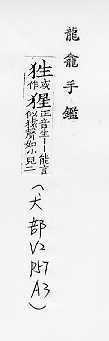 龍龕手鑑
狌或作猩正音生丨能言似猨聲如小兒二
(犬部 V2 P57 A3)